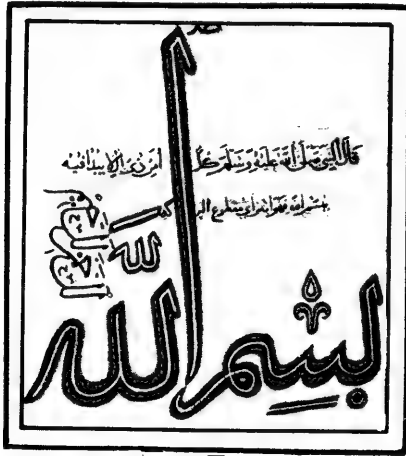 قال النبي صلى الله عليه وسلم كل امر ذي بال لا يبدا فيه
بسم الله فهو ابتر اي مقطوع البركة
بسم الله